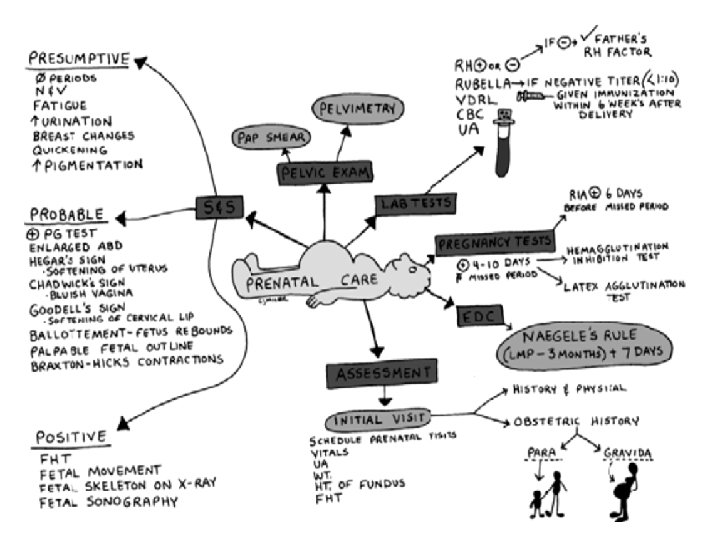 PRESUMPTIVE
Ø PERIODS
N & V
FATIGUE
↑ URINATION
BREAST CHANGES
QUICKENING
↑ PIGMENTATION
PROBABLE
⊕ PG TEST
ENLARGED ABD
HEGAR'S SIGN
·SOFTENING OF UTERUS
CHADWICK'S SIGN
·BLUISH VAGINA
GOODELL'S SIGN
·SOFTENING OF CERVICAL LIP
BALLOTTEMENT-FETUS REBOUNDS
PALPABLE FETAL OUTLINE
BRAXTON-HICKS CONTRACTIONS
POSITIVE
FHT
FETAL MOVEMENT
FETAL SKELETON ON X-RAY
FETAL SONOGRAPHY
S&S
PAP SMEAR
PELVIMETRY
PELVIC EXAM
LAB TESTS
RH ⊕ OR ⊖
IF ⊖ → ✓ FATHER'S
RH FACTOR
RUBELLA → IF NEGATIVE TITER (<1:10)
GIVEN IMMUNIZATION
WITHIN 6 WEEK'S AFTER
DELIVERY
VDRL
CBC
UA
PRENATAL CARE
PREGNANCY TESTS
RIA ⊕ 6 DAYS
BEFORE MISSED PERIOD
⊕ 4-10 DAYS
MISSED PERIOD
HEMAGGLUTINATION
INHIBITION TEST
LATEX AGGLUTINATION
TEST
EDC
NAEGELE'S RULE
(LMP - 3 MONTHS) + 7 DAYS
ASSESSMENT
INITIAL VISIT
SCHEDULE PRENATAL VISITS
VITALS
UA
WT.
HT. OF FUNDUS
FHT
HISTORY & PHYSICAL
OBSTETRIC HISTORY
PARA
GRAVIDA